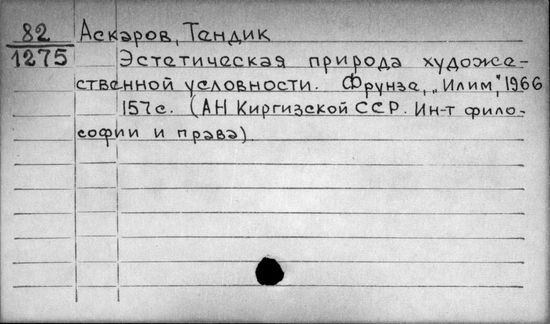 82 Аскаров, Тендик
1275 Эстетическая природа художе-
ственной условности. Фрунзе, „Илим", 1966
157с. (АН Киргизской ССР. Ин-т фило-
софии и права).